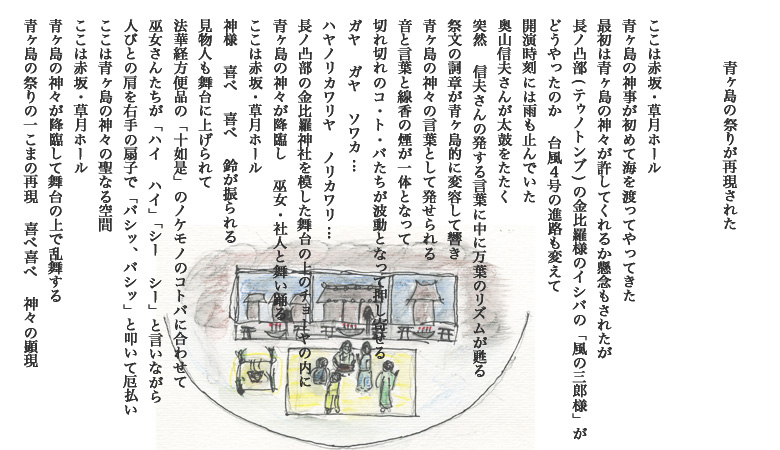 青ヶ島の祭りが再現された
ここは赤坂・草月ホール
青ヶ島の神事が初めて海を渡ってやってきた
最初は青ヶ島の神々が許してくれるか懸念もされたが
長ノ凸部(テゥノトンブ)の金比羅様のイシバの「風の三郎様」が
どうやったのか　台風4号の進路も変えて
開演時刻には雨も止んでいた
奥山信夫さんが太鼓をたたく
突然　信夫さんの発する言葉に中に万葉のリズムが甦る
祭文の詞章が青ヶ島的に変容して響き
青ヶ島の神々の言葉として発せられる
音と言葉と線香の煙が一体となって
切れ切れのコ・ト・バたちが波動となって押し寄せる
ガヤ　ガヤ　ソワカ…
ハヤノリカワリヤ　ノリカワリ…
長ノ凸部の金比羅神社を模した舞台の上のチョーヤの内に
青ヶ島の神々が降臨し　巫女・社人と舞い踊る
ここは赤坂・草月ホール
神様　喜べ　喜べ　鈴が振られる
見物人も舞台に上げられて
法華経方便品の「十如是」のノケモノのコトバに合わせて
巫女さんたちが「ハイ　ハイ」「シー　シー」と言いながら
人びとの肩を右手の扇子で「バシッ、バシッ」と叩いて厄払い
ここは青ヶ島の神々の聖なる空間
ここは赤坂・草月ホール
青ヶ島の神々が降臨して舞台の上で乱舞する
青ヶ島の祭りの一こまの再現　喜べ喜べ　神々の顕現